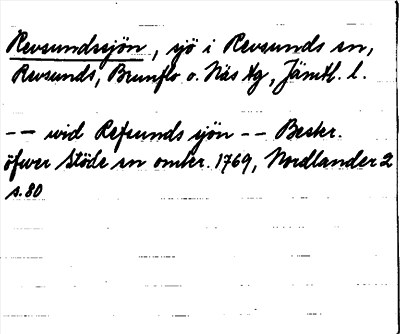 Revsundssjön, sjö i Revsunds sn,
Revsunds, Brunflo o. Näs tg, Jämtl. l.
-- wid Refsunds sjön -- Beskr.
öfwer Stöde sn omkr. 1769, Nordlander 2
s. 80